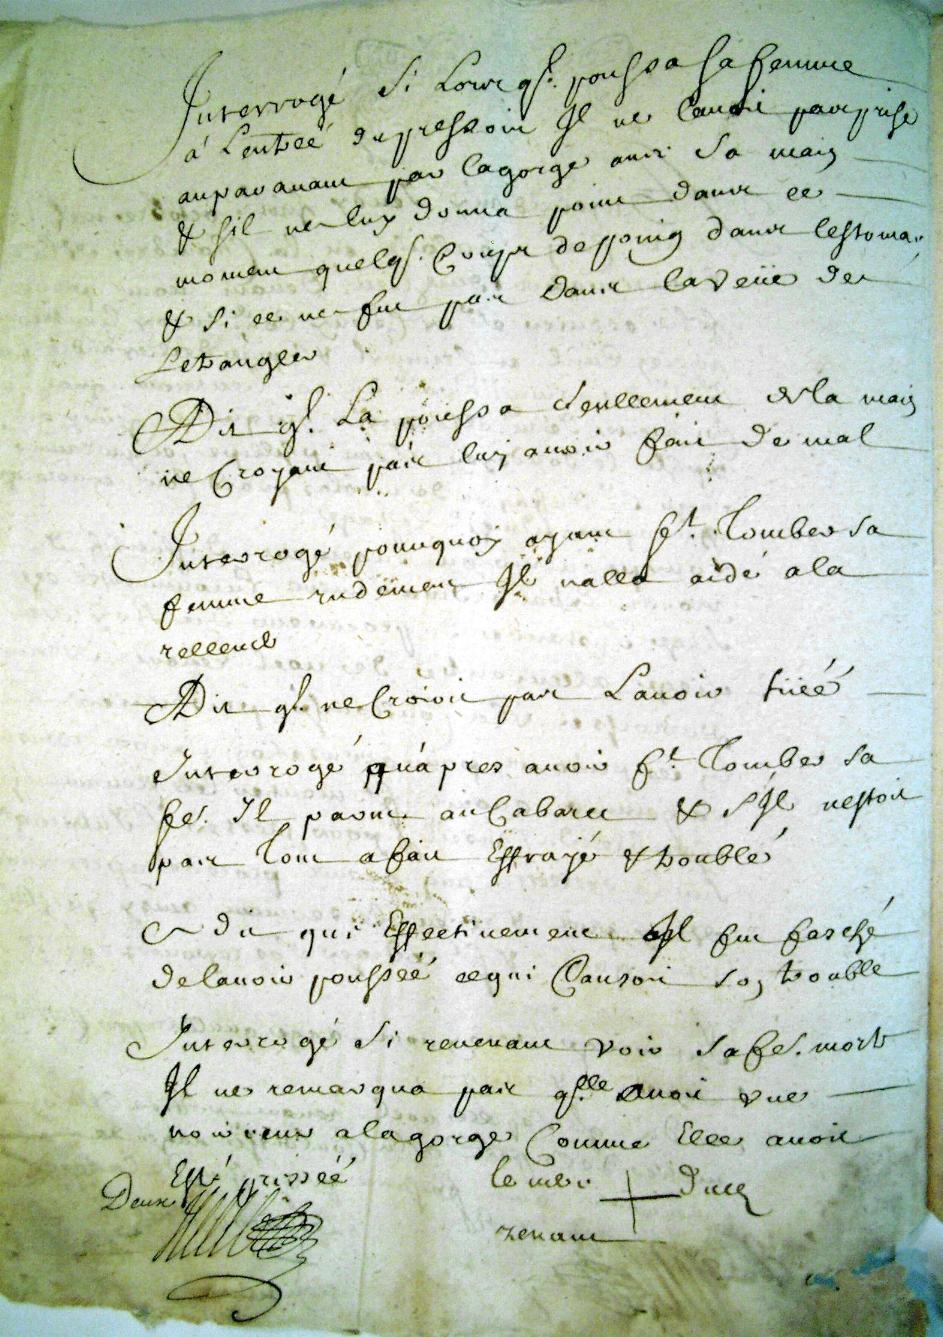 Interrogé si Lors qῑ poussa sa femme
a L'entreé du pressoir Il ne lauoit pas prise
auparauant par la gorge auec sa main
& sil ne luy donna point dans ce
moment quelqs Coups de poing dans lestoma
& si ce ne fut pas dans la veüe de
Letrangler
Dit qῑ La poussa seullement de la main
ne Croyant pas luy auoir fait de mal
Interrogé pourquoy ayant ft Tomber sa
femme rudement Il nalla aidé a la
releuer
Dit qῑ ne Croioit pas Lauoir tüeé
Interrogé qu'apres auoir ft Tomber sa
fe. Il pas au Cabaret & s'Il nestoit
pas tout afait Effrayé & troublé
dit qui Effectiuement Il fut fasché
de lauoir pousseé ce qui Causoit son trouble
Interrogé Si reuenant voir sa fe. morte
Il ne remarqua pas qlle auoit une
noirceur a la gorge Comme Elle auoit
Esté
Deux